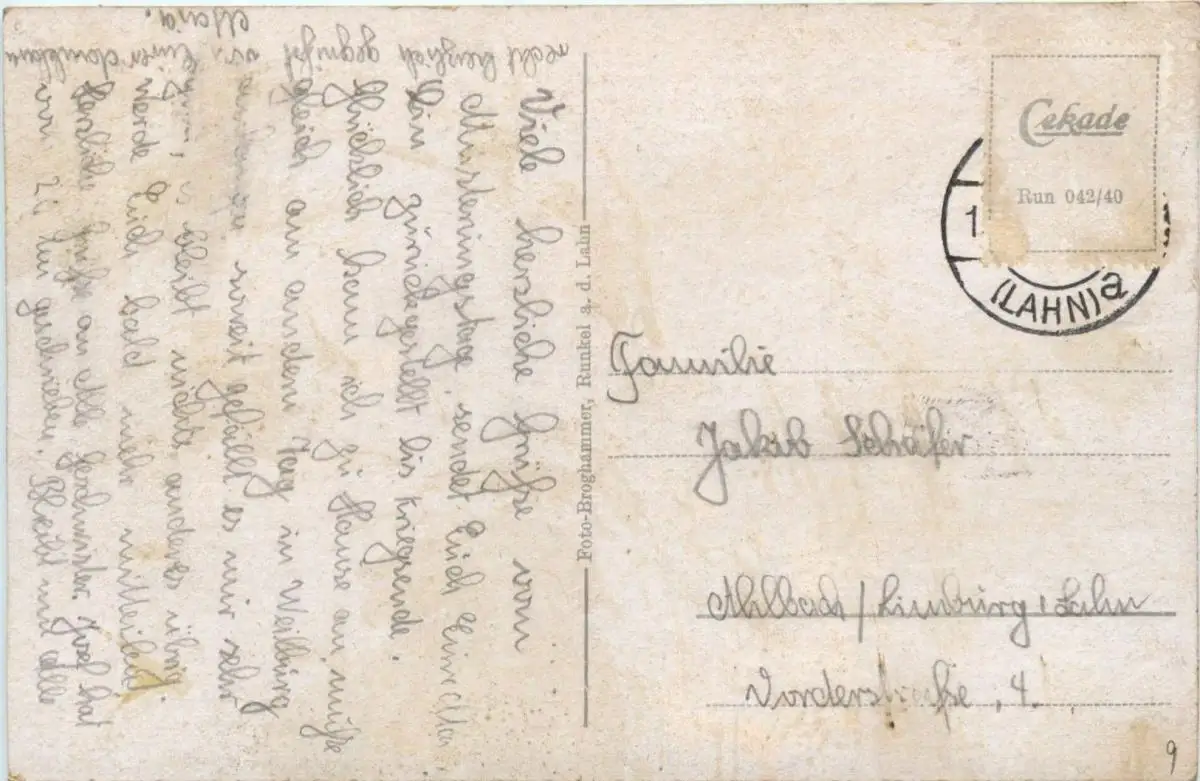 Viele herzliche Grüße vom
Musterungstage, sendet Euch
Bin zurückgestellt bis Kriegsende.
Glücklich kam ich zu Hause an, mußte
gleich am andern Tag in Weilburg
soweit gefällt es mir sehr
bleibt nichts anderes übrig.
werde Euch bald mehr mitteilen.
Herzliche Grüße an Alle Josef hat
geschrieben. Bleibt nun alle
recht herzlich gegrüßt
von Eurer dankbaren
Maria.
Foto-Broghammer, Runkel a. d. Lahn
Cekade
Run 042/40
1
(LAHN) a
Familie
Jakob Schäfer
Ahlbach / Limburg, Lahn
Vorderstraße, 4.
9